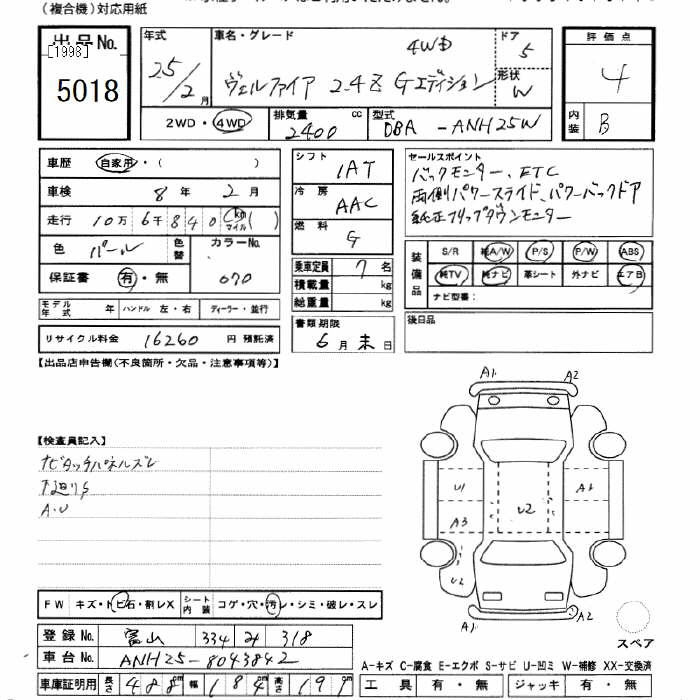 (複合機)対応用紙
出品No.
[1998]
5018
年式
25/2月
車名・グレード
4WD
ヴェルファイア 2.4Z Gエディション
ドア
5
形状
W
評価点
4
内装
B
2WD・4WD
排気量
2400 cc
型式
DBA-ANH25W
車歴 自家用・( )
車検 8年 2月
走行 10万 6千 840 km マイル( )
色 パール
色替
カラーNo.
070
保証書 有・無
モデル年式 年
ハンドル 左・右
ディーラー・並行
リサイクル料金 16260 円 預託済
シフト
1AT
冷房
AAC
燃料
G
乗車定員 7名
積載量 kg
総重量 kg
書類期限
6月末日
セールスポイント
バックモニター、ETC
両側パワースライド、パワーバックドア
純正フリップダウンモニター
装備品
S/R 純A/W P/S P/W ABS
純TV 純ナビ 革シート 外ナビ エアB
ナビ型番:
後日品
【出品店申告欄(不良箇所・欠品・注意事項等)】
【検査員記入】
ナビタッチパネルズレ
下廻りS
A・U
A1 A2
U1 A1
U2
A3
U2
A1 A2
スペア
FW キズ・トビ石・割レX
シート内装 コゲ・穴・汚レ・シミ・破レ・スレ
登録No. 富山 334 み 318
車台No. ANH25-8043842
車庫証明用 長さ 488cm 幅 184cm 高さ 191
A-キズ C-腐食 E-エクボ S-サビ U-凹ミ W-補修 XX-交換済
工具 有・無 ジャッキ 有・無